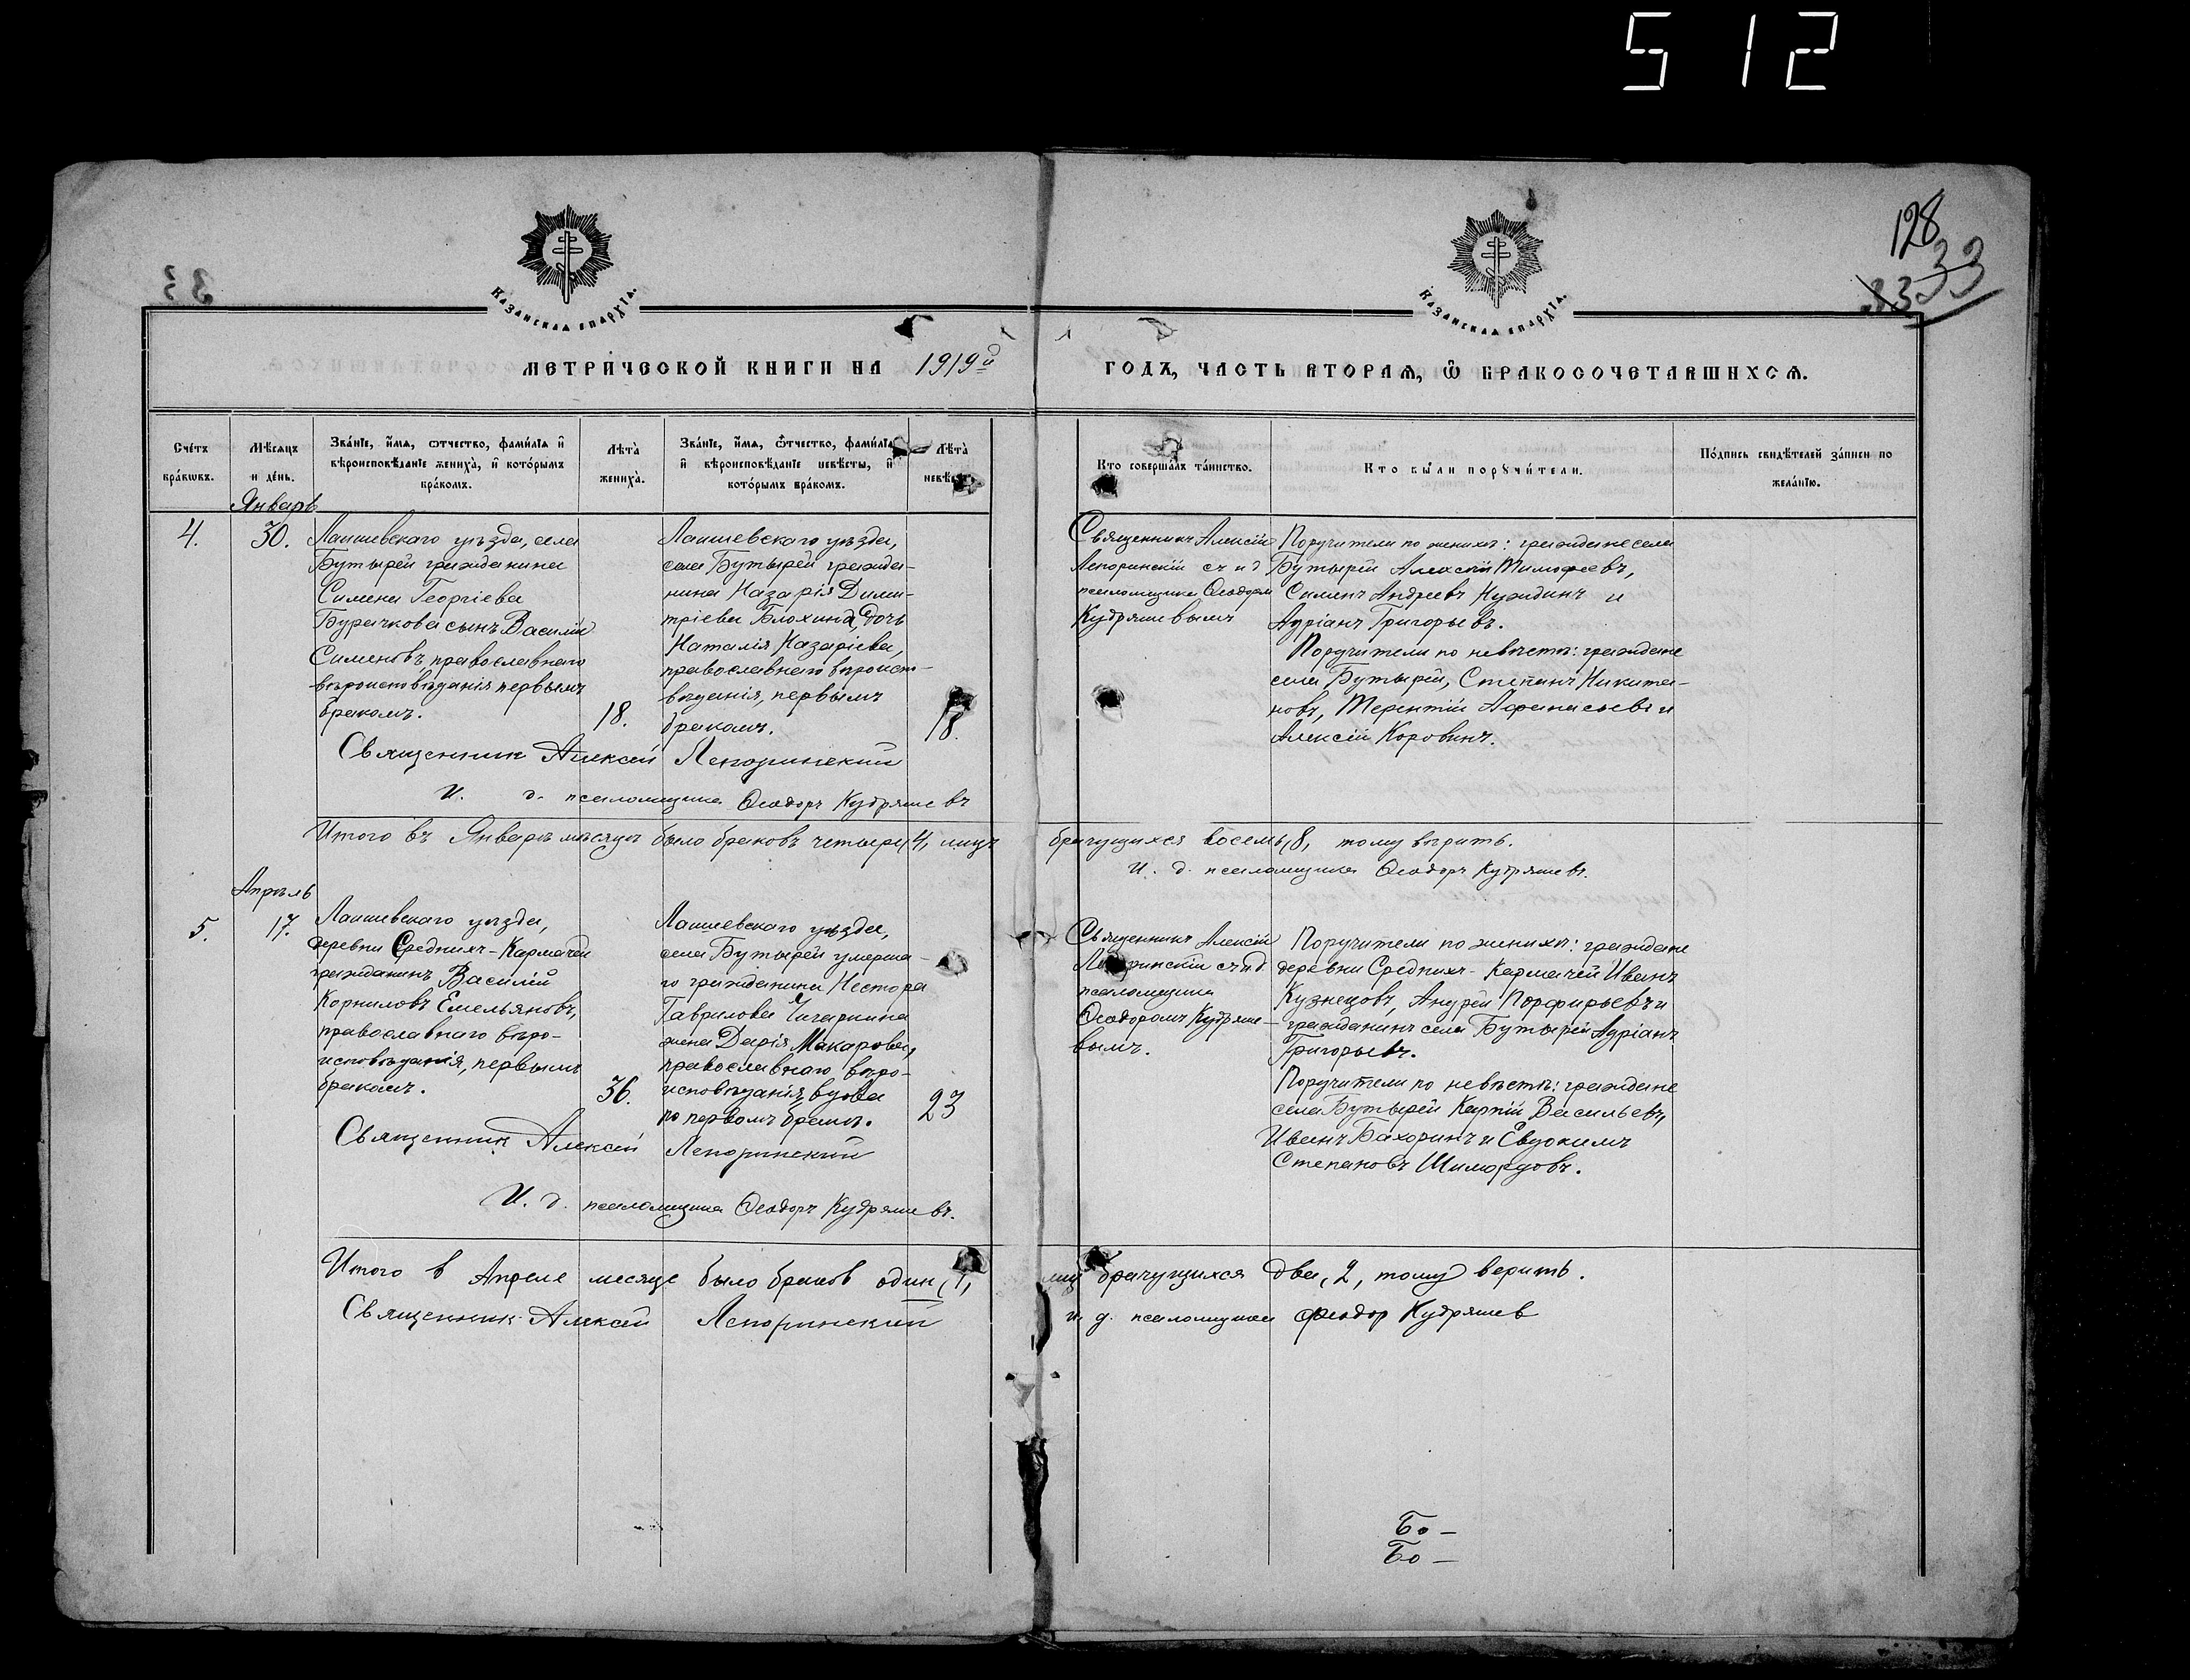 512
128
33
33
КАЗАНСКАѦ ЕПАРХІ́А.
КАЗАНСКАѦ ЕПАРХІ́А.
МЕТРИ́ЧЕСКОЙ КНИГИ НА 1919й ГОДЪ, ЧАСТЬ ВТОРАѦ, Ѡ҆ БРАКОСОЧЕТАВШИХСѦ.
Сче́тъ бра́кѡвъ.
Мѣ́сѧцъ и де́нь.
Зва́нїе, и҆́мѧ, ѻ҆́тчество, фами́лїѧ и҆ вѣроисповѣ́данїе жениха̀, и҆ кото́рымъ бра́комъ.
Лѣта̀ жениха̀.
Зва́нїе, и҆́мѧ, ѻ҆́тчество, фами́лїѧ и҆ вѣроисповѣ́данїе невѣ́сты, и҆ кото́рымъ бра́комъ.
Лѣта̀ невѣ́сты.
Кто соверша́лъ та́инство.
Кто бы́ли порꙋчи́тели.
По́дпись свидѣ́телей за́писи по жела́нїю.
Январь
4.
30.
Лаишевскаго уѣзда, села
Бутырей гражданина
Симена Георгіева
Бурачкова сынъ Василій
Сименовъ православнаго
вѣроисповѣданія первымъ
бракомъ.
18.
Лаишевскаго уѣзда,
села Бутырей гражда-
нина Назарія Дими-
тріева Блохина, дочь
Наталія Назаріева,
православнаго вѣроиспо-
вѣданія, первымъ
бракомъ.
18.
Священникъ Алексій
Лепоринскій съ и д
псаломщика Ѳеодоромъ
Кудряшевымъ
Поручители по женихѣ: граждане села
Бутырей Алексій Тимофеевъ,
Сименъ Андреевъ Нуждинъ и
Адріанъ Григорьевъ.
Поручители по невѣстѣ: граждане
села Бутырей, Степанъ Никита-
новъ, Терентій Афанасьевъ и
Алексій Коровинъ.
Священник Алексей Лепоринский
И. д. псаломщика Ѳеодоръ Кудряшевъ
Итого въ Январѣ мѣсяцѣ было браковъ четыре, 4, лицъ брачущихся восемь, 8, тому вѣрить.
И. д. псаломщика Ѳеодоръ Кудряшевъ.
Апрѣль
5.
17.
Лаишевскаго уѣзда,
деревни Среднихъ-Кармачей
гражданинъ Василій
Корниловъ Емельяновъ,
православнаго вѣро-
исповѣданія, первымъ
бракомъ.
36.
Лаишевскаго уѣзда,
села Бутырей умерша-
го гражданина Нестора
Гаврилова Чигарина
жена Дарія Макарова,
православнаго вѣро-
исповѣданія, вдова
по первомъ бракѣ.
23
Священникъ Алексій
Лепоринскій съ и д.
псаломщика
Ѳеодоромъ Кудряше-
вымъ.
Поручители по женихѣ: граждане
деревни Среднихъ-Кармачей Иванъ
Кузнецовъ, Андрей Порфирьевъ и
гражданинъ села Бутырей Адріанъ
Григорьевъ.
Поручители по невѣстѣ: граждане
села Бутырей Карпій Васильевъ,
Иванъ Бахоринъ и Евдокимъ
Степановъ
Священник Алексей Лепоринский
И. д. псаломщика Ѳеодоръ Кудряшевъ.
Итого в Апреле месяце было браков один, 1, лиц брачущихся два, 2, тому верить.
Священник Алексей Лепоринский и. д. псаломщика Феодор Кудряшев
Бо —
Бо —